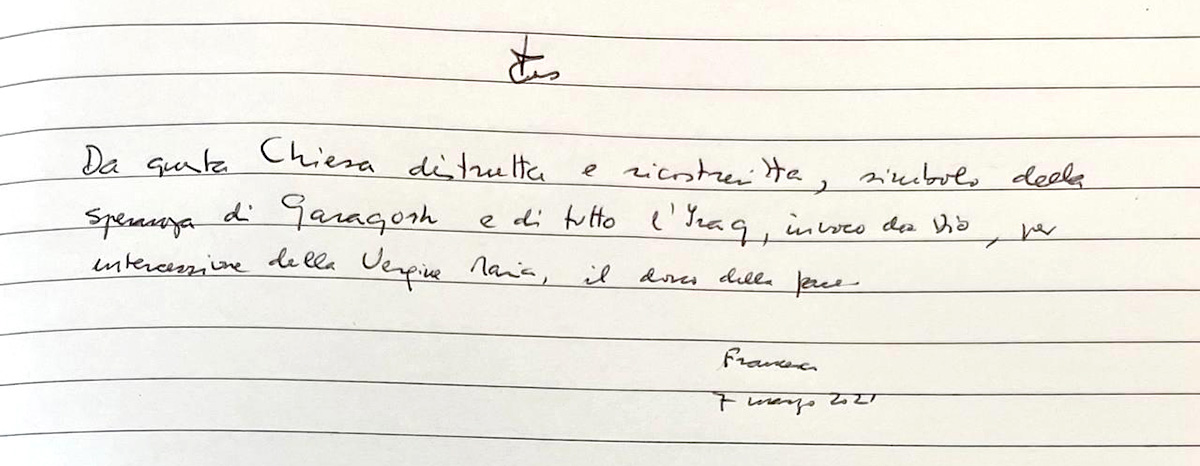 Da questa Chiesa distrutta e ricostruitta, simbolo della
speranza di Qaraqosh e di tutto l'Iraq, invoco da Dio, per
intercessione della Vergine Maria, il dono della pace
Francesco
7 marzo 2021